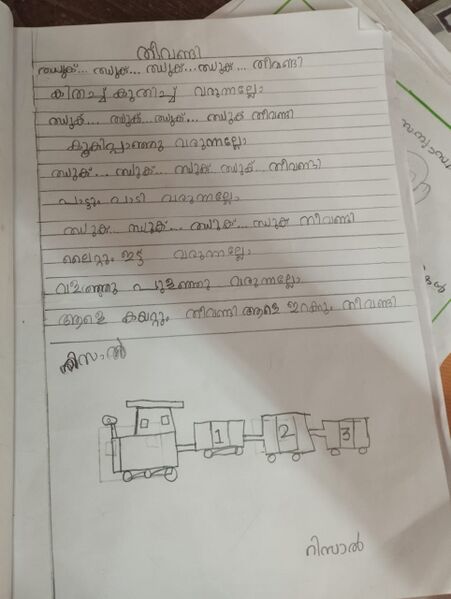 തീവണ്ടി
ഝുക്... ഝുക്... ഝുക്... ഝുക്... തീവണ്ടി
കിതച്ച് കുതിച്ച് വരുന്നല്ലോ
ഝുക്... ഝുക്... ഝുക്... ഝുക് തീവണ്ടി
കൂകിപ്പാഞ്ഞു വരുന്നല്ലോ
ഝുക്... ഝുക്... ഝുക് ഝുക്... തീവണ്ടി
പാട്ടും പാടി വരുന്നല്ലോ
ഝുക്... ഝുക്... ഝുക്... ഝുക് തീവണ്ടി
ലൈറ്റും ഇട്ട് വരുന്നല്ലോ
വളഞ്ഞു പുളഞ്ഞു വരുന്നല്ലോ
ആളെ കയറ്റും തീവണ്ടി ആളെ ഇറക്കും തീവണ്ടി
റിസാൽ
1 2 3
റിസാൽ